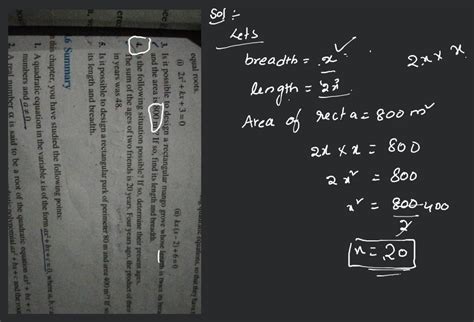 equal roots.
(i) 2x² + kx + 3 = 0 (ii) kx (x – 2) + 6 = 0
3. Is it possible to design a rectangular mango grove whose length is twice its breadth,
and the area is 800 m²? If so, find its length and breadth.
4. Is the following situation possible? If so, determine their present ages.
The sum of the ages of two friends is 20 years. Four years ago, the product of their ages
in years was 48.
5. Is it possible to design a rectangular park of perimeter 80 m and area 400 m²? If so, find
its length and breadth.
.6 Summary
n this chapter, you have studied the following points:
1. A quadratic equation in the variable x is of the form ax² + bx + c = 0, where a, b, c
numbers and a ≠ 0.
2. A real number α is said to be a root of the quadratic equation ax² + bx + c
Sol :-
Lets
breadth = x
2x × x
length = 2x
Area of recta = 800 m²
2x × x = 800
2x² = 800
x² = 800 400
2
x = 20